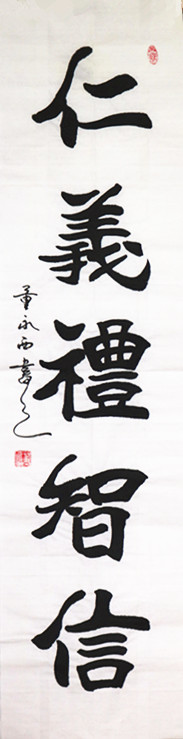 仁義禮智信
董永西書